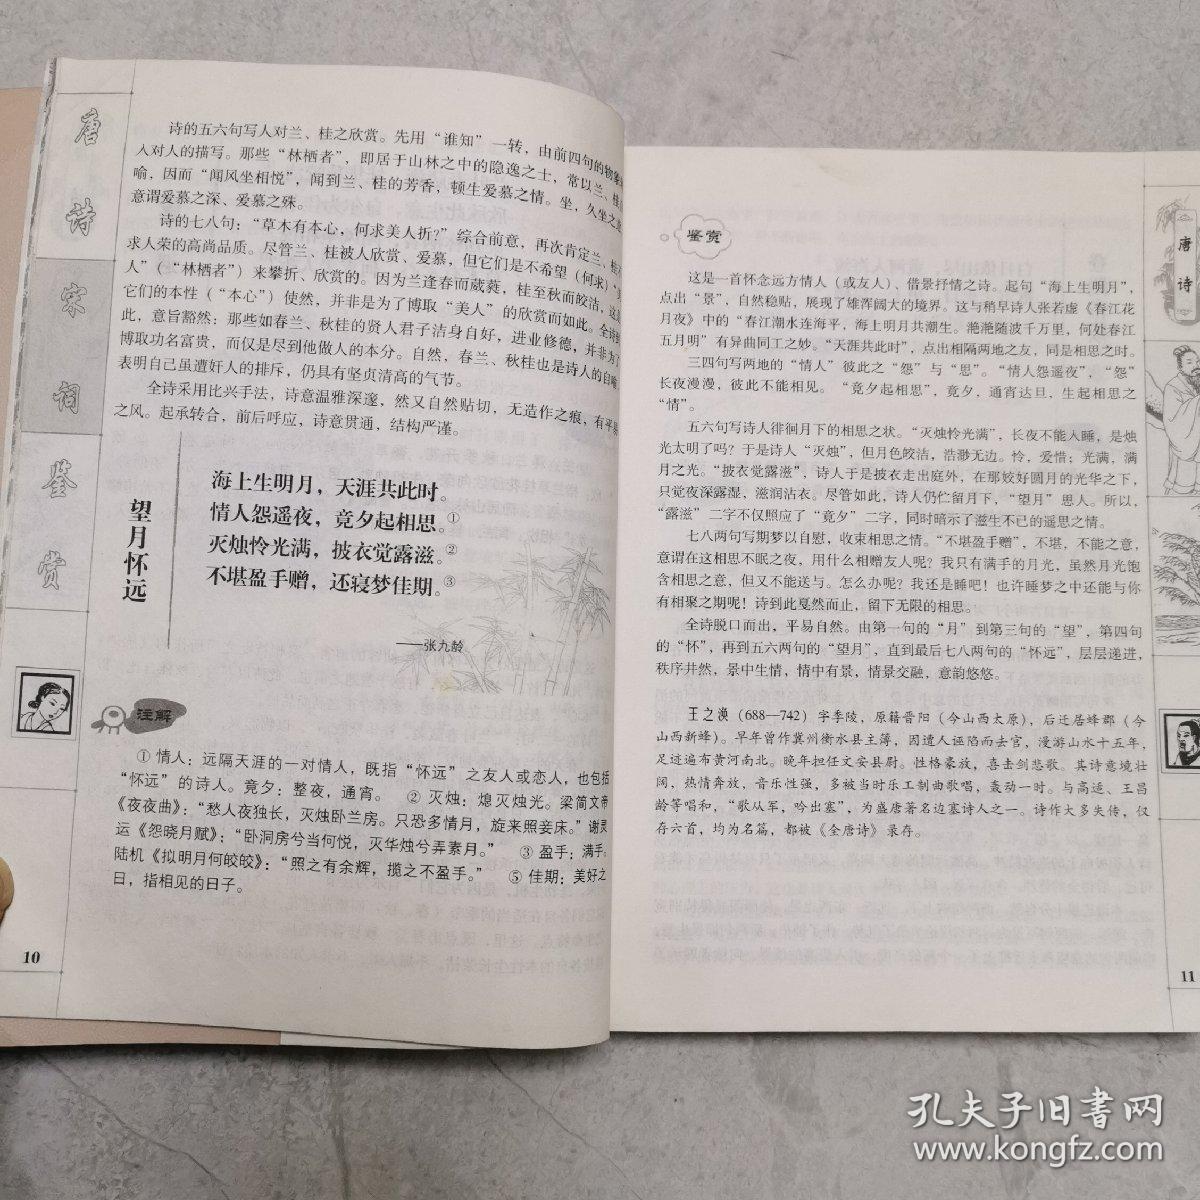 唐
诗
宋
词
鉴
赏
诗的五六句写人对兰、桂之欣赏。先用“谁知”一转，由前四句的物象
人对人的描写。那些“林栖者”，即居于山林之中的隐逸之士，常以兰、桂
喻，因而“闻风坐相悦”，闻到兰、桂的芳香，顿生爱慕之情。坐，久坐之
意谓爱慕之深、爱慕之殊。
诗的七八句：“草木有本心，何求美人折？”综合前意，再次肯定兰、桂
求人荣的高尚品质。尽管兰、桂被人欣赏、爱慕，但它们是不希望（何求）“
人”（“林栖者”）来攀折、欣赏的。因为兰逢春而葳蕤，桂至秋而皎洁，这
它们的本性（“本心”）使然，并非是为了博取“美人”的欣赏而如此。全诗
此，意旨豁然：那些如春兰、秋桂的贤人君子洁身自好，进业修德，并非为了
博取功名富贵，而仅是尽到他做人的本分。自然，春兰、秋桂也是诗人的自
表明自己虽遭奸人的排斥，仍具有坚贞清高的气节。
全诗采用比兴手法，诗意温雅深邃，然又自然贴切，无造作之痕，有平
之风。起承转合，前后呼应，诗意贯通，结构严谨。
望月怀远
海上生明月，天涯共此时。
情人怨遥夜，竟夕起相思。①
灭烛怜光满，披衣觉露滋。②
不堪盈手赠，还寝梦佳期。③
——张九龄
注解
① 情人：远隔天涯的一对情人，既指“怀远”之友人或恋人，也包括
“怀远”的诗人。竟夕：整夜，通宵。 ② 灭烛：熄灭烛光。梁简文帝
《夜夜曲》：“愁人夜独长，灭烛卧兰房。只恐多情月，旋来照妾床。”谢灵
运《怨晓月赋》：“卧洞房兮当何悦，灭华烛兮弄素月。” ③ 盈手：满手。
陆机《拟明月何皎皎》：“照之有余辉，揽之不盈手。” ⑤ 佳期：美好之
日，指相见的日子。
10
鉴赏
这是一首怀念远方情人（或友人）、借景抒情之诗。起句“海上生明月”，
点出“景”，自然稳贴，展现了雄浑阔大的境界。这与稍早诗人张若虚《春江花
月夜》中的“春江潮水连海平，海上明月共潮生。滟滟随波千万里，何处春江
五月明”有异曲同工之妙。“天涯共此时”，点出相隔两地之友，同是相思之时。
三四句写两地的“情人”彼此之“怨”与“思”。“情人怨遥夜”，“怨”
长夜漫漫，彼此不能相见。“竟夕起相思”，竟夕，通宵达旦，生起相思之
“情”。
五六句写诗人徘徊月下的相思之状。“灭烛怜光满”，长夜不能入睡，是烛
光太明了吗？于是诗人“灭烛”，但月色皎洁，浩渺无边。怜，爱惜；光满，满
月之光。“披衣觉露滋”，诗人于是披衣走出庭外，在那姣好圆月的光华之下，
只觉夜深露湿，滋润沾衣。尽管如此，诗人仍伫留月下，“望月”思人。所以，
“露滋”二字不仅照应了“竟夕”二字，同时暗示了滋生不已的遥思之情。
七八两句写期梦以自慰，收束相思之情。“不堪盈手赠”，不堪，不能之意，
意谓在这相思不眠之夜，用什么相赠友人呢？我只有满手的月光，虽然月光饱
含相思之意，但又不能送与。怎么办呢？我还是睡吧！也许睡梦之中还能与你
有相聚之期呢！诗到此戛然而止，留下无限的相思。
全诗脱口而出，平易自然。由第一句的“月”到第三句的“望”，第四句
的“怀”，再到五六两句的“望月”，直到最后七八两句的“怀远”，层层递进，
秩序井然，景中生情，情中有景，情景交融，意韵悠悠。
王之涣（688—742）字季陵，原籍晋阳（今山西太原），后迁居绛郡（今
山西新绛）。早年曾作冀州衡水县主簿，因遭人诬陷而去官，漫游山水十五年，
足迹遍布黄河南北。晚年担任文安县尉。性格豪放，喜击剑悲歌。其诗意境壮
阔，热情奔放，音乐性强，多被当时乐工制曲歌唱，轰动一时。与高适、王昌
龄等唱和，“歌从军，吟出塞”，为盛唐著名边塞诗人之一。诗作大多失传，仅
存六首，均为名篇，都被《全唐诗》录存。
唐
诗
11
孔夫子旧书网
www.kongfz.com